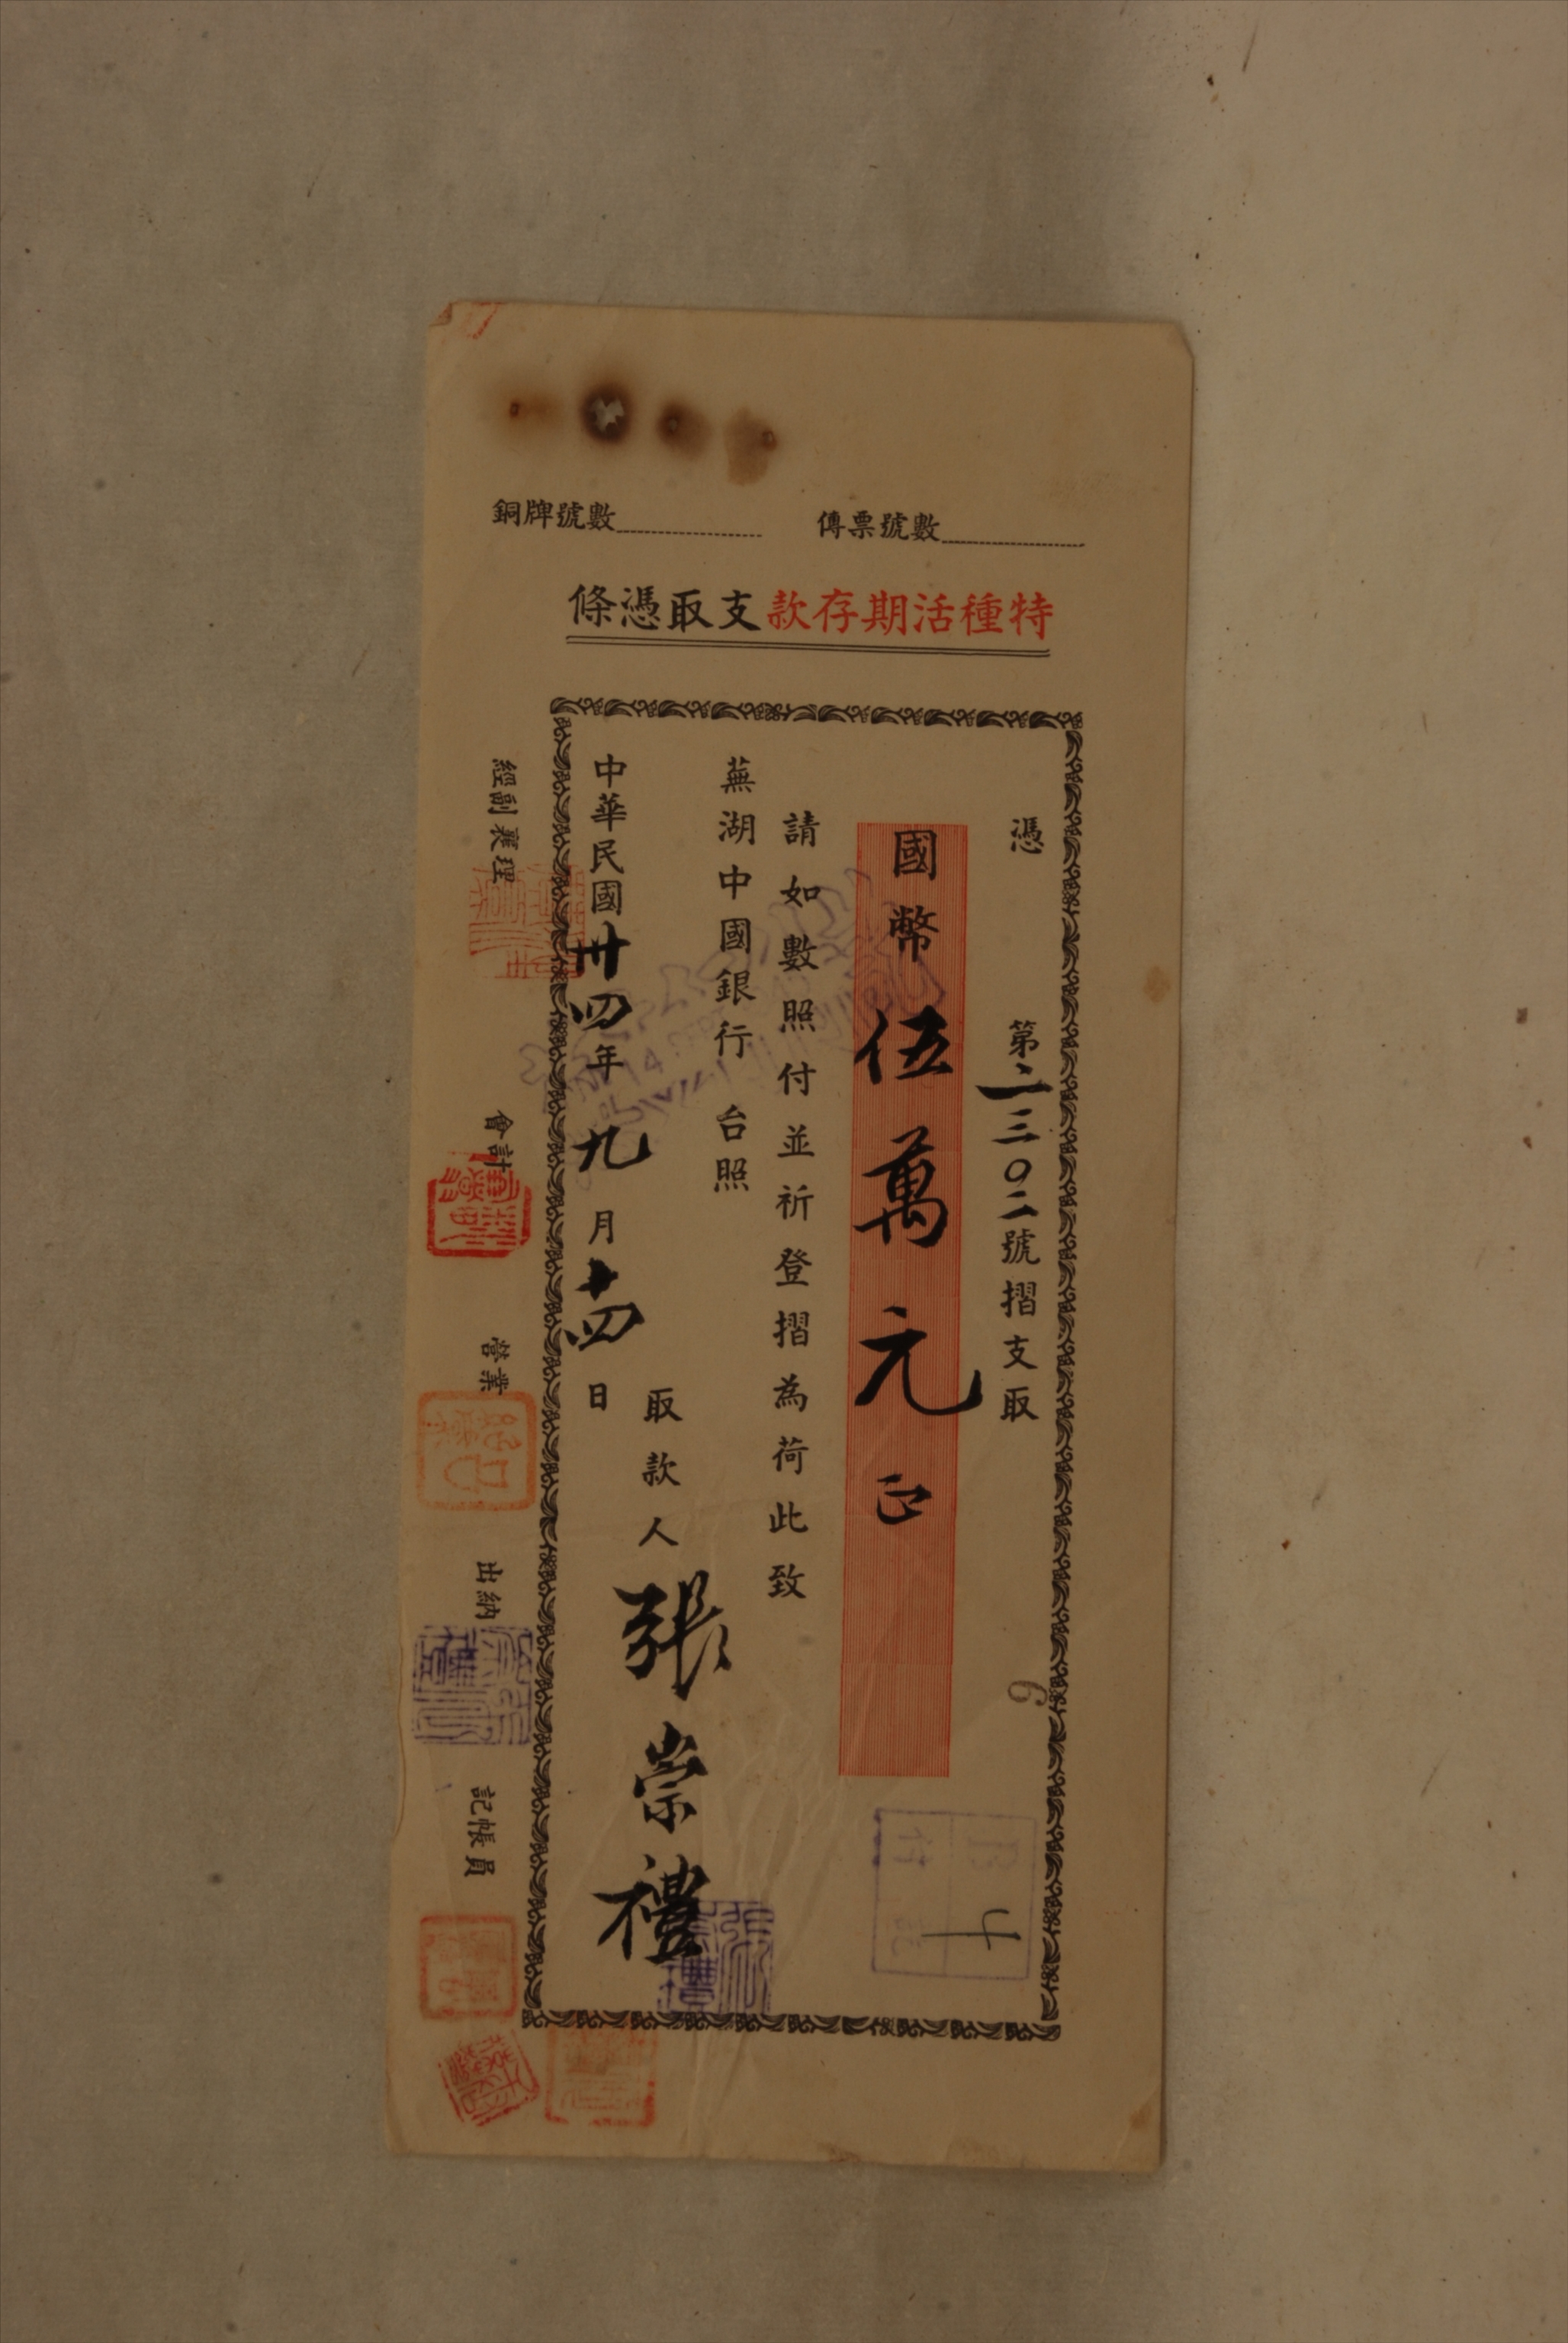 銅牌號數
傳票號數
特種活期存款支取憑條
憑
第二三〇二號摺支取
國幣伍萬元正
請如數照付並祈登摺為荷此致
蕪湖中國銀行 台照
取款人張崇禮
中華民國卅四年九月十四日
經副襄理
會計
營業
出納
記帳員